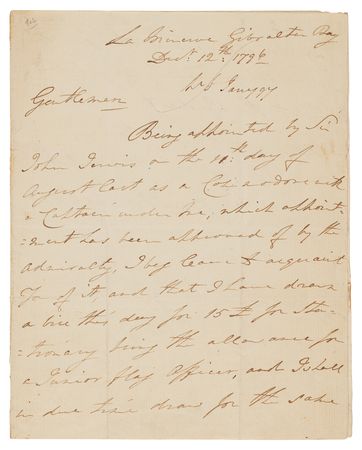 La Minerve Gibraltar Bay
Decr. 12th: 1796
Gentlemen
Being appointed by Sir
John Jervis on the 10th: day of
August last as a Commodore with
a Captain under me, which appoint-
=ment has been approved of by the
Admiralty, I beg leave to acquaint
You of it, and that I have drawn
a bill this day for 15 £ for Sta-
=tionary being the allowance for
a Junior flag Officer, and I shall
in due time draw for the same